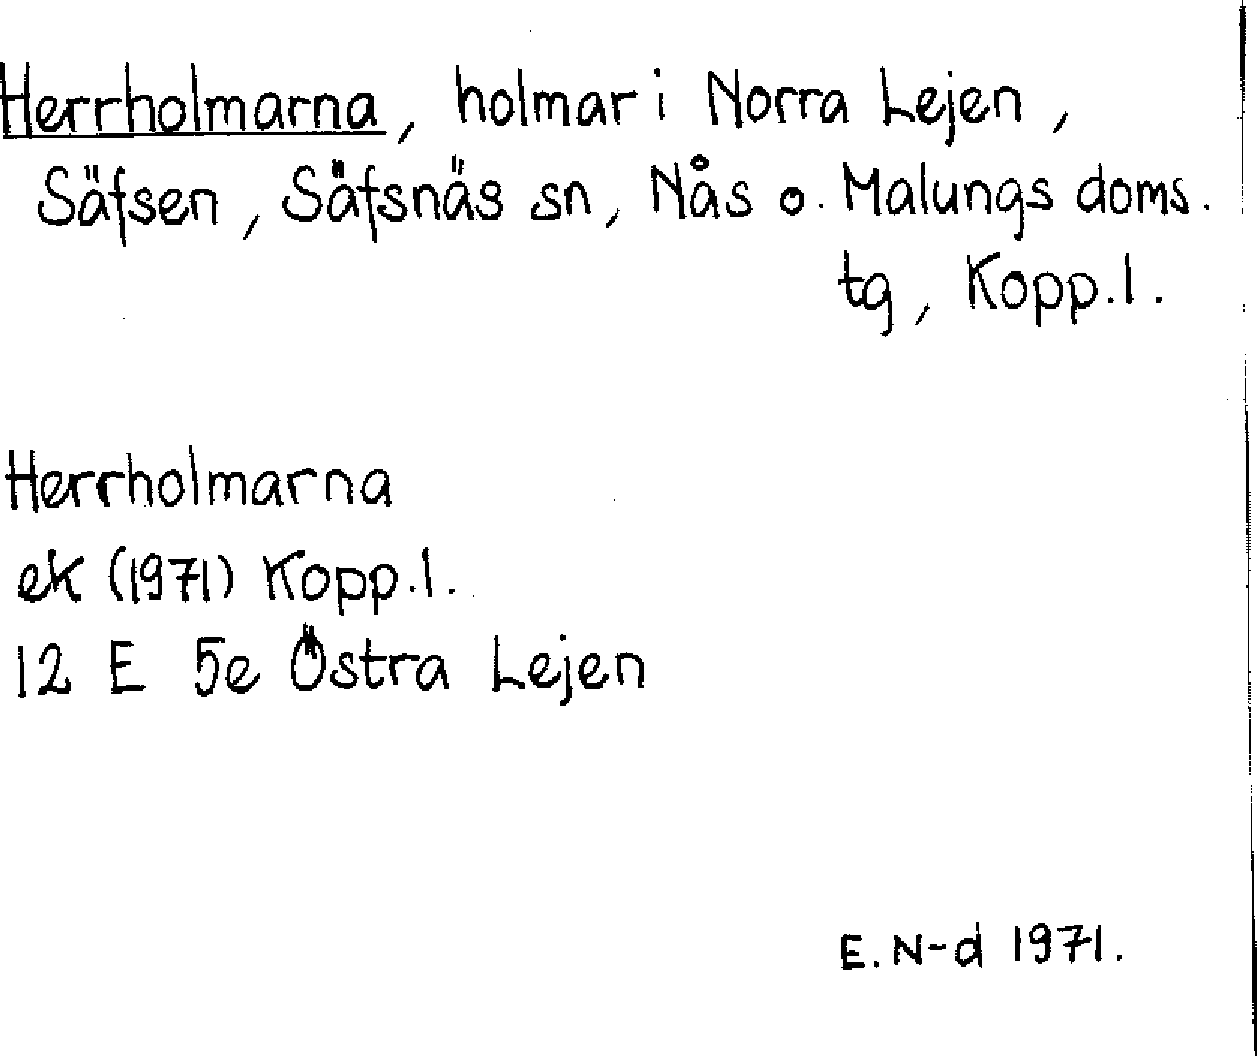 Herrholmarna, holmar i Norra Lejen,
Säfsen, Säfsnäs sn, Nås o. Malungs doms.
tg, Kopp.l.
Herrholmarna
ek (1971) Kopp.l.
12 E 5e Östra Lejen
E. N-d 1971.